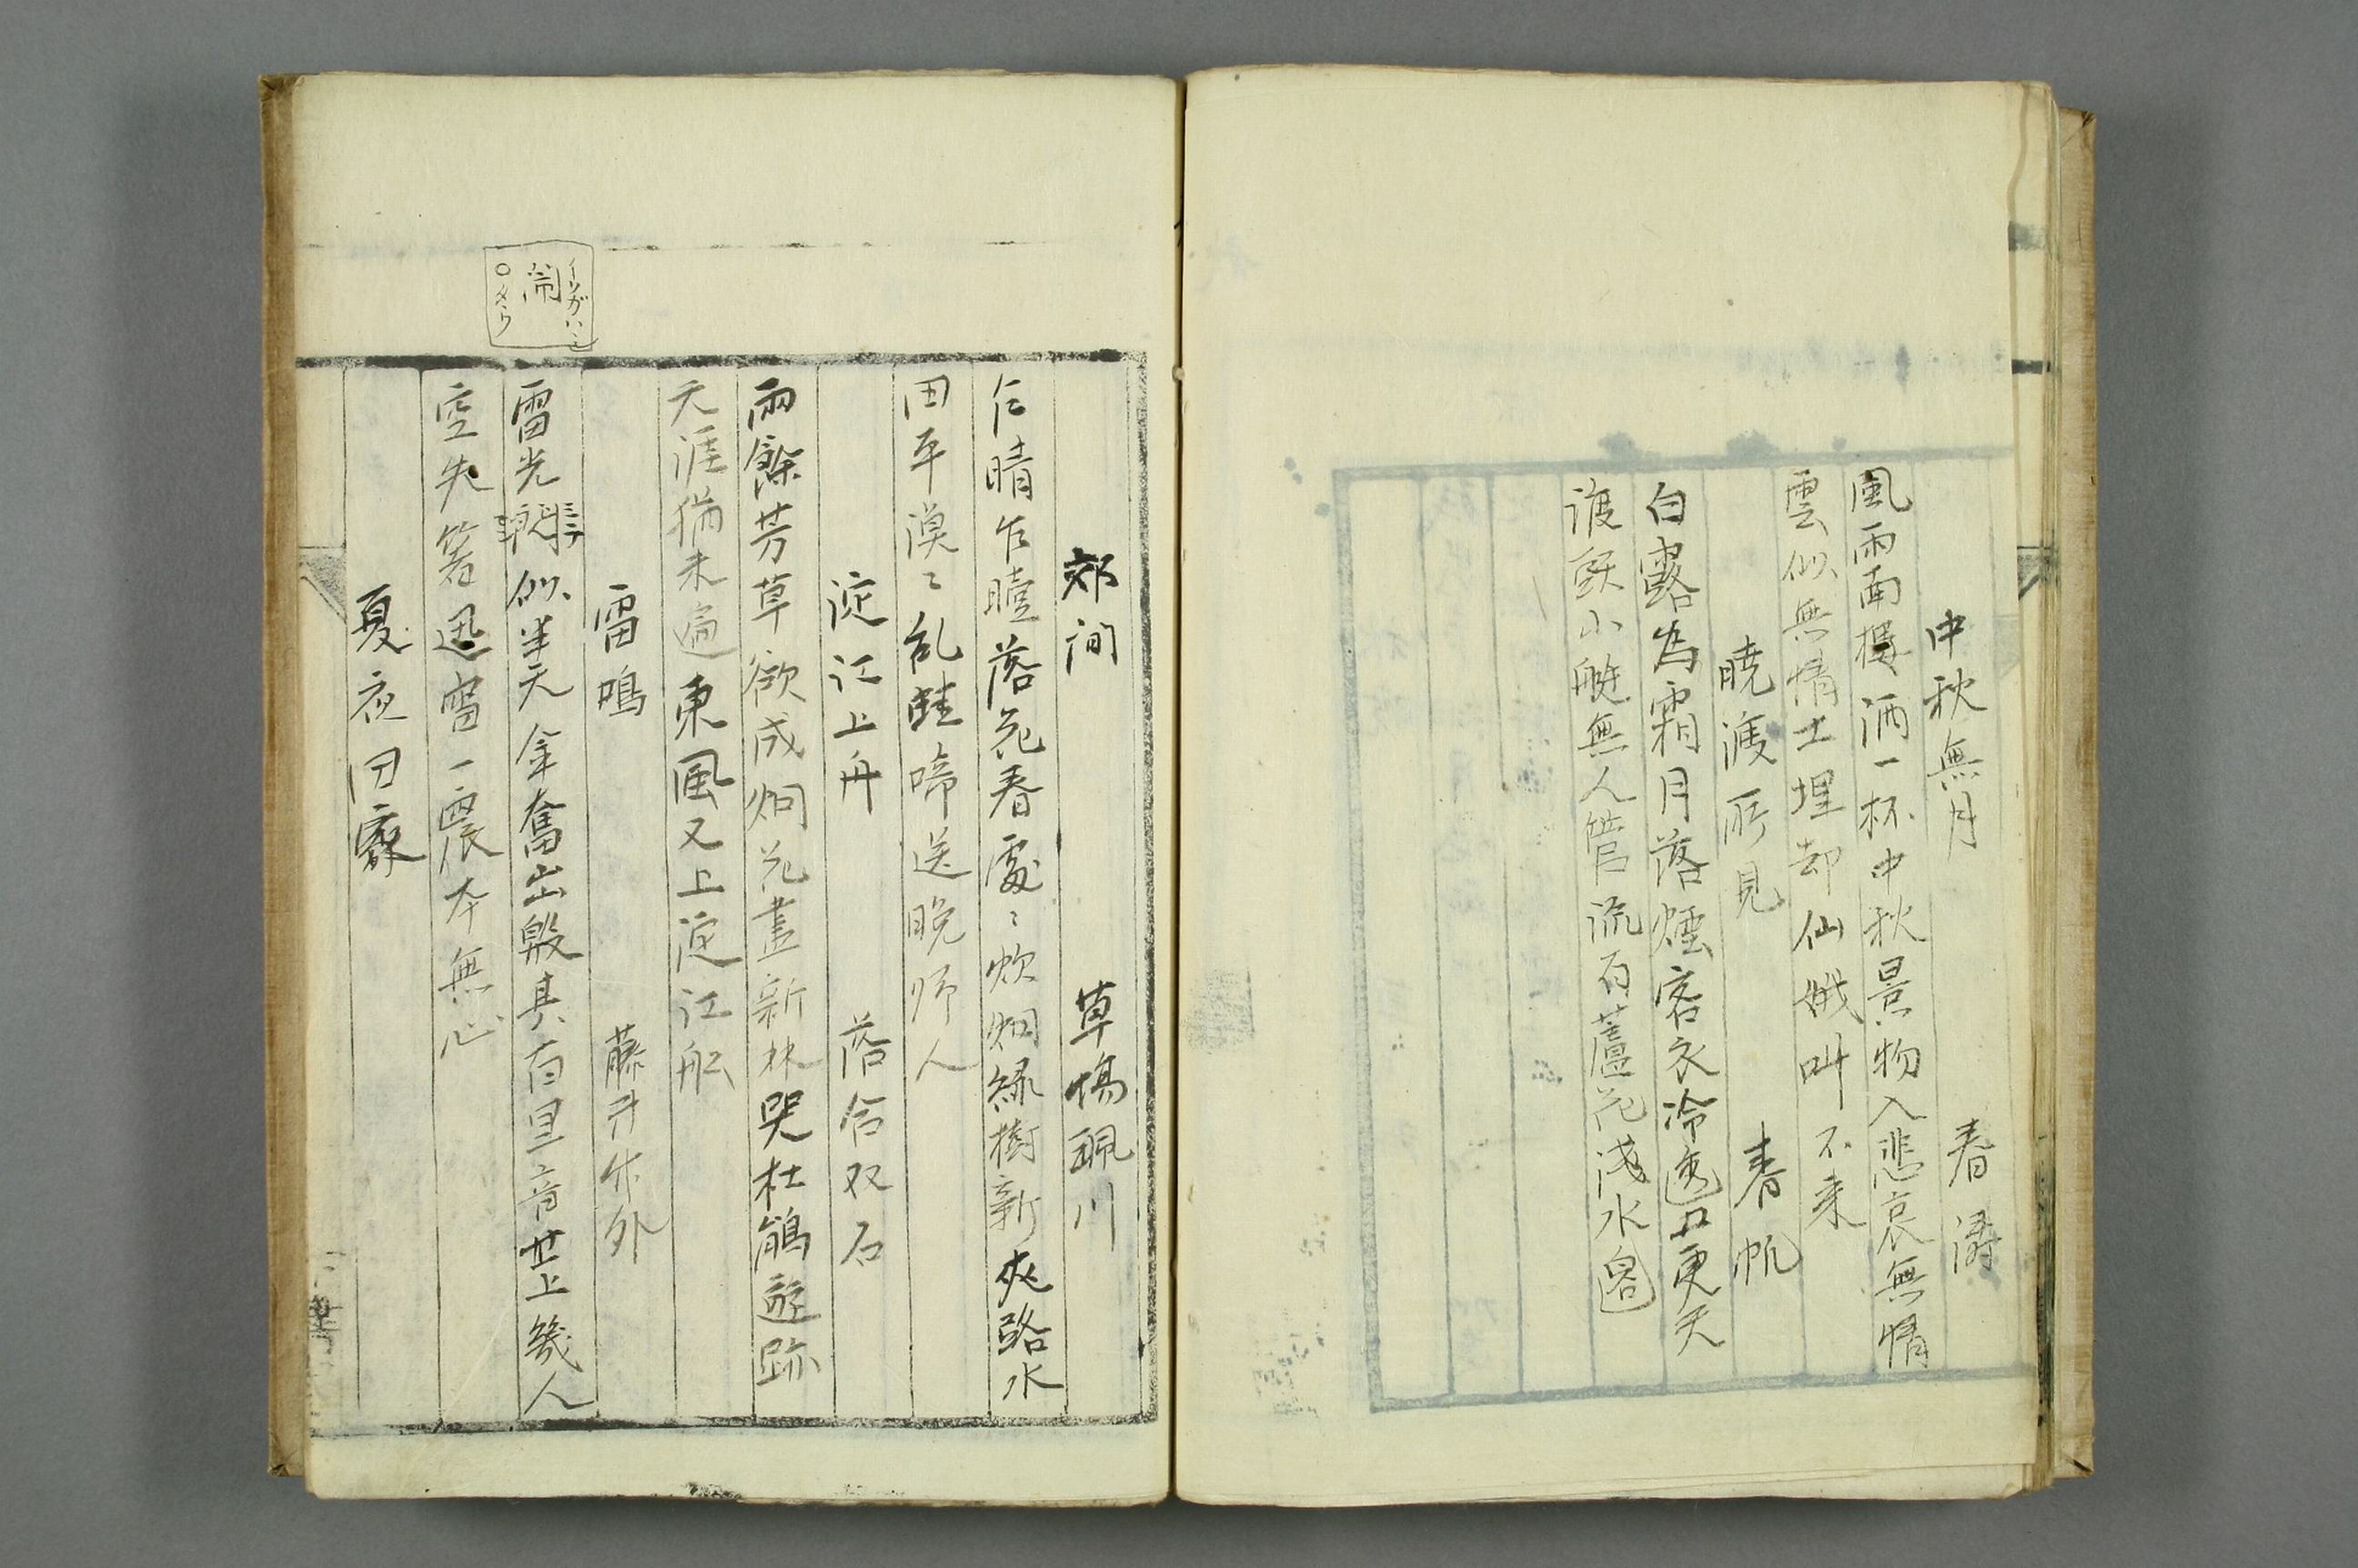 中秋無月 春濤
風雨南楼酒一杯中秋景物入悲哀無情
雲似無情土埋却仙娥叫不来
暁渡所見 春帆
白露為霜月落煙客衣冷透五更天
渡頭小艇無人管流百蘆花浅水邊
郊間 草場珮川
乍晴乍曀落花春處〻炊烟緑樹新夾路水
田平漠〻乱蛙啼送晩帰人
淀江上舟 落合双石
雨餘芳草欲成烟花盡新林哭杜鵑遊跡
天涯猶未遍東風又上淀江舩
雷鳴 藤井竹外
雷光閃似半天金奮出殷其百里音世上幾人
空失箸迅雷一震本無心
夏夜田家
閙